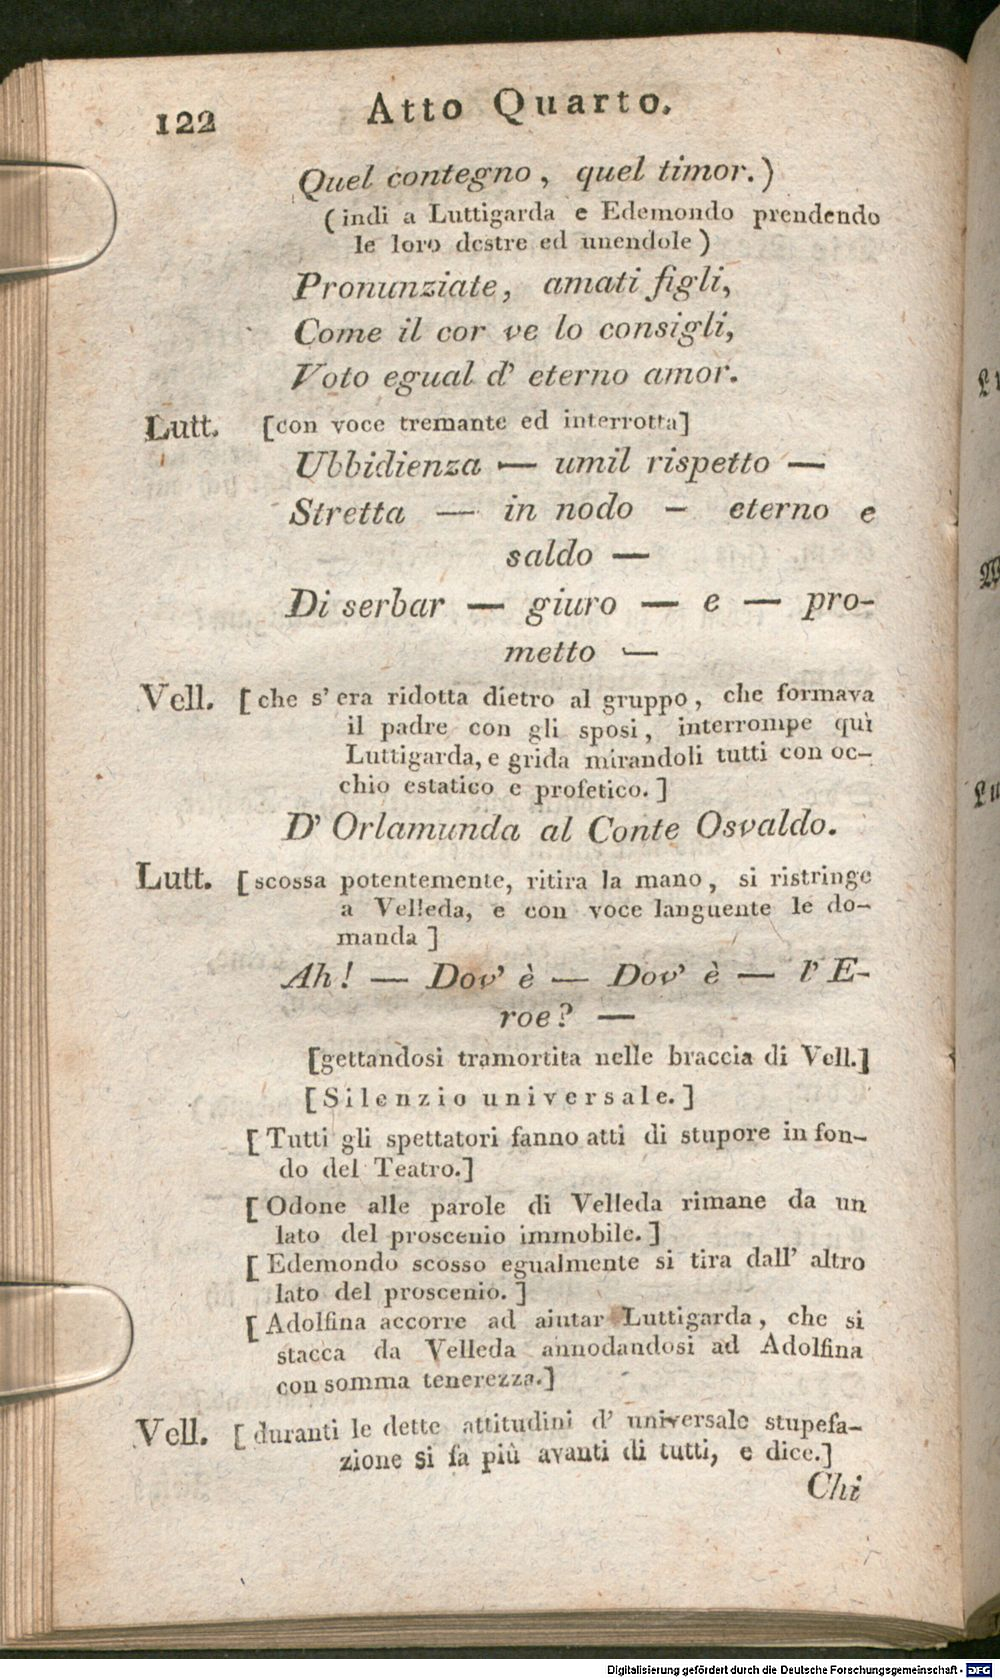 122 Atto Quarto.
Quel contegno, quel timor.)
(indi a Luttigarda e Edemondo prendendo
le loro destre ed unendole)
Pronunziate, amati figli,
Come il cor ve lo consigli,
Voto egual d' eterno amor.
Lutt. [con voce tremante ed interrotta]
Ubbidienza — umil rispetto —
Stretta — in nodo — eterno e
saldo —
Di serbar — giuro — e — pro-
metto —
Vell. [che s' era ridotta dietro al gruppo, che formava
il padre con gli sposi, interrompe quì
Luttigarda, e grida mirandoli tutti con oc-
chio estatico e profetico.]
D' Orlamunda al Conte Osvaldo.
Lutt. [scossa potentemente, ritira la mano, si ristringe
a Velleda, e con voce languente le do-
manda]
Ah! — Dov' è — Dov' è — l' E-
roe? —
[gettandosi tramortita nelle braccia di Vell.]
[Silenzio universale.]
[Tutti gli spettatori fanno atti di stupore in fon-
do del Teatro.]
[Odone alle parole di Velleda rimane da un
lato del proscenio immobile.]
[Edemondo scosso egualmente si tira dall' altro
lato del proscenio.]
[Adolfina accorre ad aiutar Luttigarda, che si
stacca da Velleda annodandosi ad Adolfina
con somma tenerezza.]
Vell. [duranti le dette attitudini d' universale stupefa-
zione si fa più avanti di tutti, e dice.]
Chi
Digitalisierung gefördert durch die Deutsche Forschungsgemeinschaft - DFG